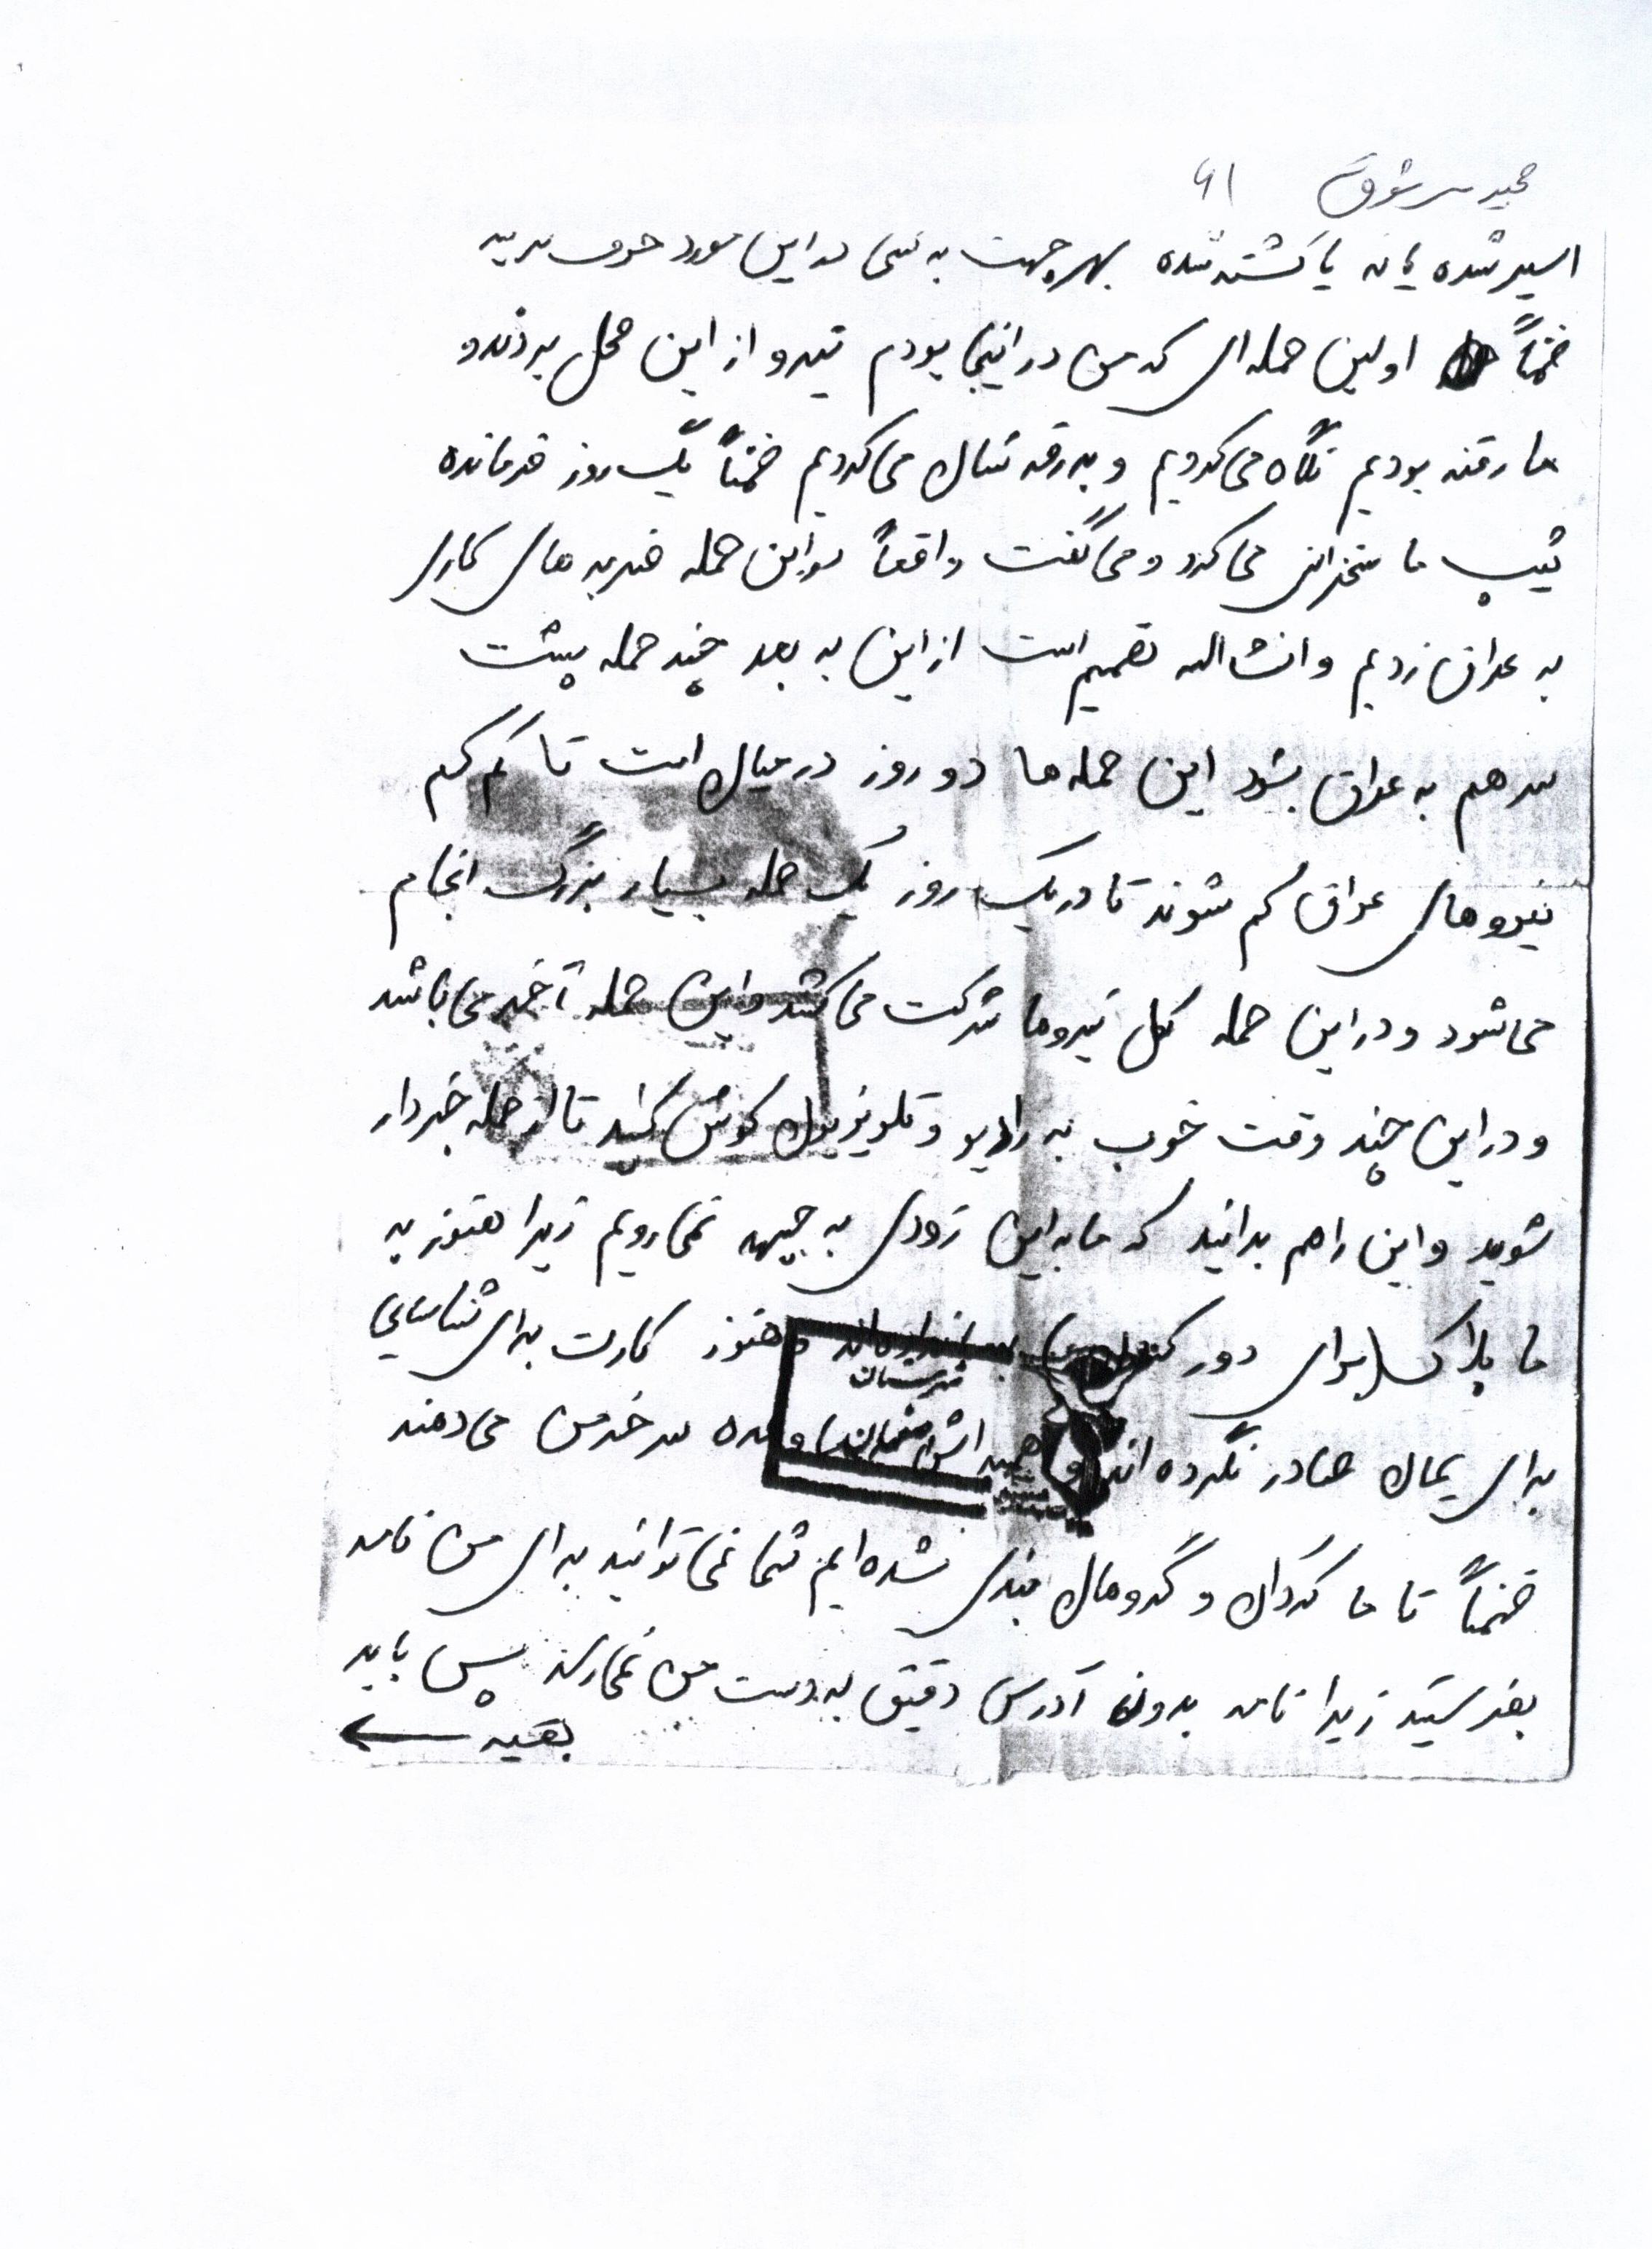 مجید سرشوق ۶۱
اسیر شده یا نه یا کشته شده بهر جهت به کسی در این مورد حرف نزنید
ضمناً اولین حمله‌ای که من در اینجا بودم نیرو از این محل بردند و
ما رفته بودیم نگاه می‌کردیم و بدرقه شان می‌کردیم ضمناً یک روز فرمانده
تیپ ما سخنرانی می‌کرد و می‌گفت واقعاً در این حمله ضربه های کاری
به عراق زدیم و انشاالله تصمیم است از این به بعد چند حمله پشت
سر هم به عراق بشود این حمله‌ها دو روز در میان است تا کم کم
نیروهای عراق کم شوند تا در یک روز یک حمله بسیار بزرگ انجام
می‌شود و در این حمله کل نیروها شرکت می‌کنند و این حمله آخر می‌باشد
و در این چند وقت خوب به رادیو و تلویزیون گوش کنید تا از حمله خبردار
شوید و این را هم بدانید که ما به این زودی به جبهه نمی‌رویم زیرا هنوز به
ما پلاک برای دور هنوز کارت برای شناسایی
برای یمان صادر نکرده اند و وعده سر خرمن می‌دهند
شهرستان
ضمناً تا ما گردان و گروهان بندی نشده ایم شما نمی‌توانید برای من نامه
بفرستید زیرا نامه بدون آدرس دقیق به دست من نمی‌رسد پس باید
بقیه ←